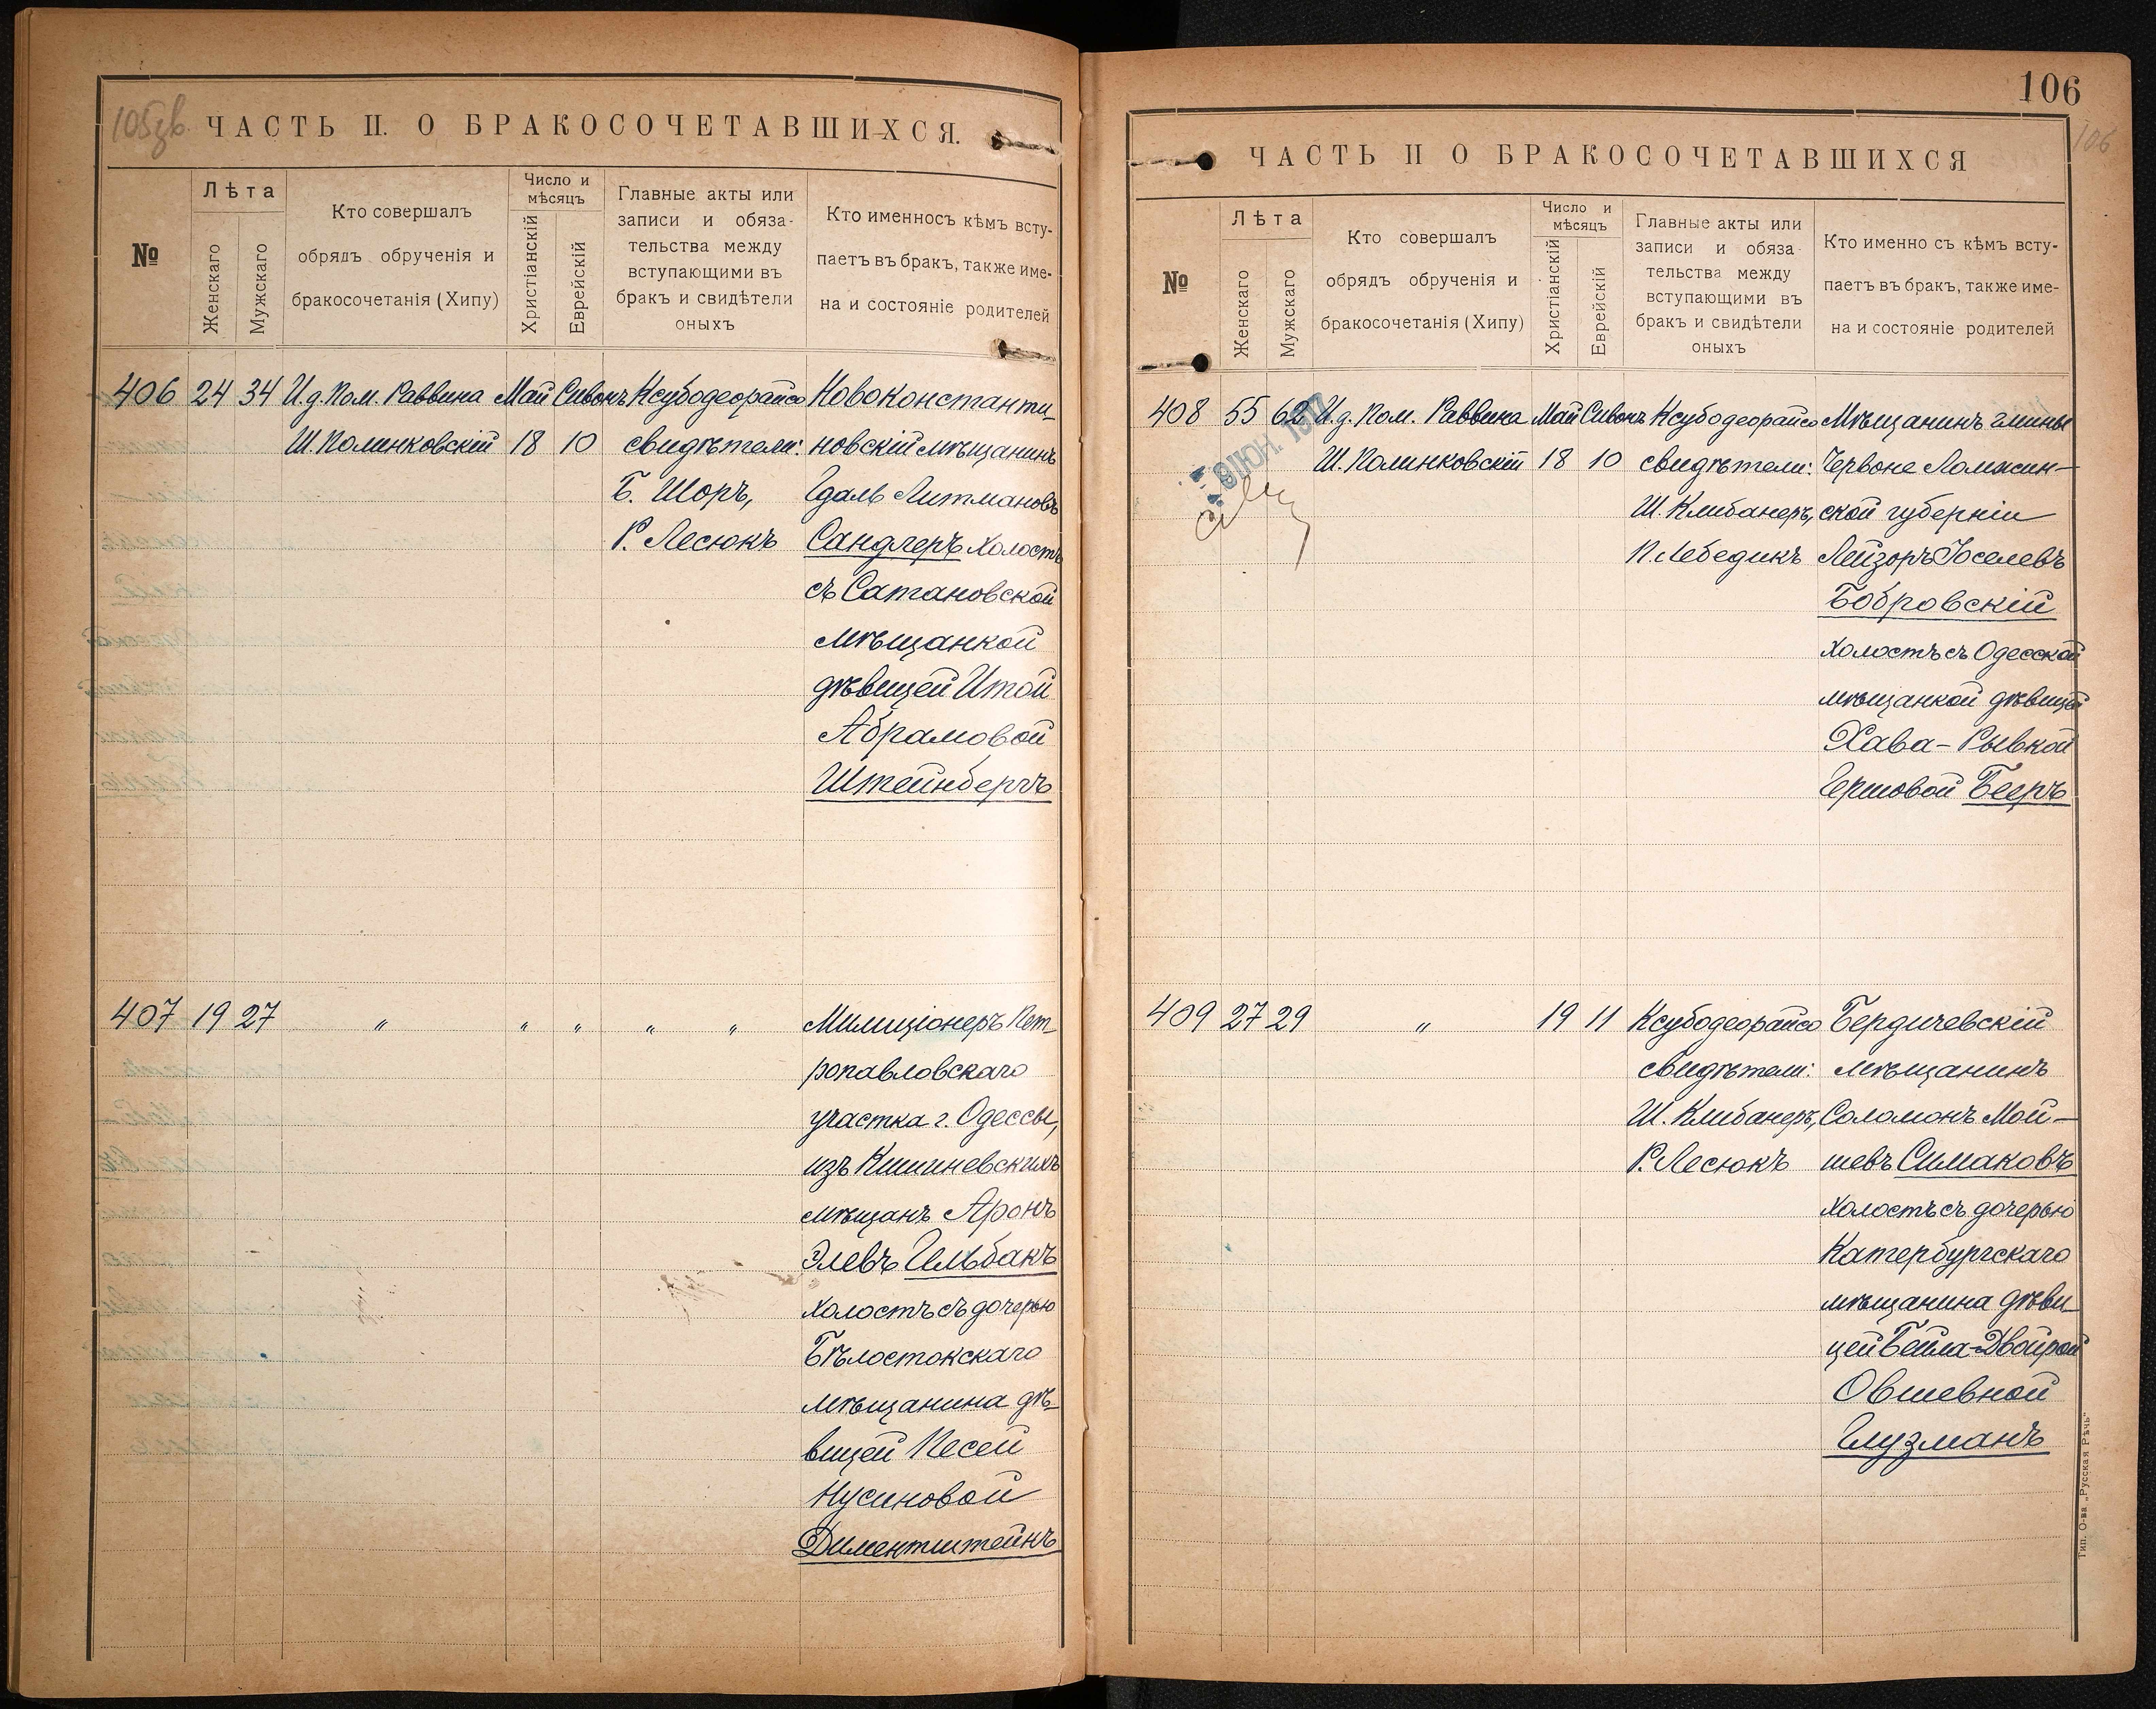 105об.
ЧАСТЬ II. О БРАКОСОЧЕТАВШИХСЯ.
№
Лѣта
Женскаго
Мужскаго
Кто совершалъ
обрядъ обрученія и
бракосочетанія (Хипу)
Число и
мѣсяцъ
Христіанскій
Еврейскій
Главные акты или
записи и обяза-
тельства между
вступающими въ
бракъ и свидѣтели
оныхъ
Кто именносъ кѣмъ всту-
паетъ въ бракъ, также име-
на и состояніе родителей
406 24 34 И.д. Пом. Раввина Май Сивонъ Ксубодеорайсо Новоконстанти-
Ш. Полинковскій 18 10 свидѣтели: новскій мѣщанинъ
Б. Шоръ, Гдаль Литмановъ
Р. Лесюкъ Сандлеръ холостъ
съ Сатановской
мѣщанкой
дѣвицей Итой
Абрамовой
Штейнбергъ
407 19 27 " " " " " Милиціонеръ Пет-
ропавловскаго
участка г. Одессы,
изъ Кишиневскихъ
мѣщанъ Аронъ
Элевъ Гельбакъ
холостъ съ дочерью
Бѣлостокскаго
мѣщанина дѣ-
вицей Песей
Нусиновой
Диментштейнъ
106
106
ЧАСТЬ II О БРАКОСОЧЕТАВШИХСЯ
№
Лѣта
Женскаго
Мужскаго
Кто совершалъ
обрядъ обрученія и
бракосочетанія (Хипу)
Число и
мѣсяцъ
Христіанскій
Еврейскій
Главные акты или
записи и обяза-
тельства между
вступающими въ
бракъ и свидѣтели
оныхъ
Кто именно съ кѣмъ всту-
паетъ въ бракъ, также име-
на и состояніе родителей
408 55 62 И.д. Пом. Раввина Май Сивонъ Ксубодеорайсо Мѣщанинъ гмины
Ш. Полинковскій 18 10 свидѣтели: Червоне Ломжин-
Ш. Клибанеръ, ской губерніи
П. Лебедикъ Лейзоръ Іоселевъ
Бобровскій
холостъ съ Одесской
мѣщанкой дѣвицей
Хава-Рывкой
Гершовой Бееръ
ІЮН. 1917
409 27 29 " 19 11 Ксубодеорайсо Бердичевскій
свидѣтели: мѣщанинъ
Ш. Клибанеръ, Соломонъ Мой-
Р. Лесюкъ шевъ Симаковъ
холостъ съ дочерью
Катербургскаго
мѣщанина дѣви-
цей Бейла-Двойрой
Овшевной
Глузманъ
Тип. О-ва „Русская Рѣчь“